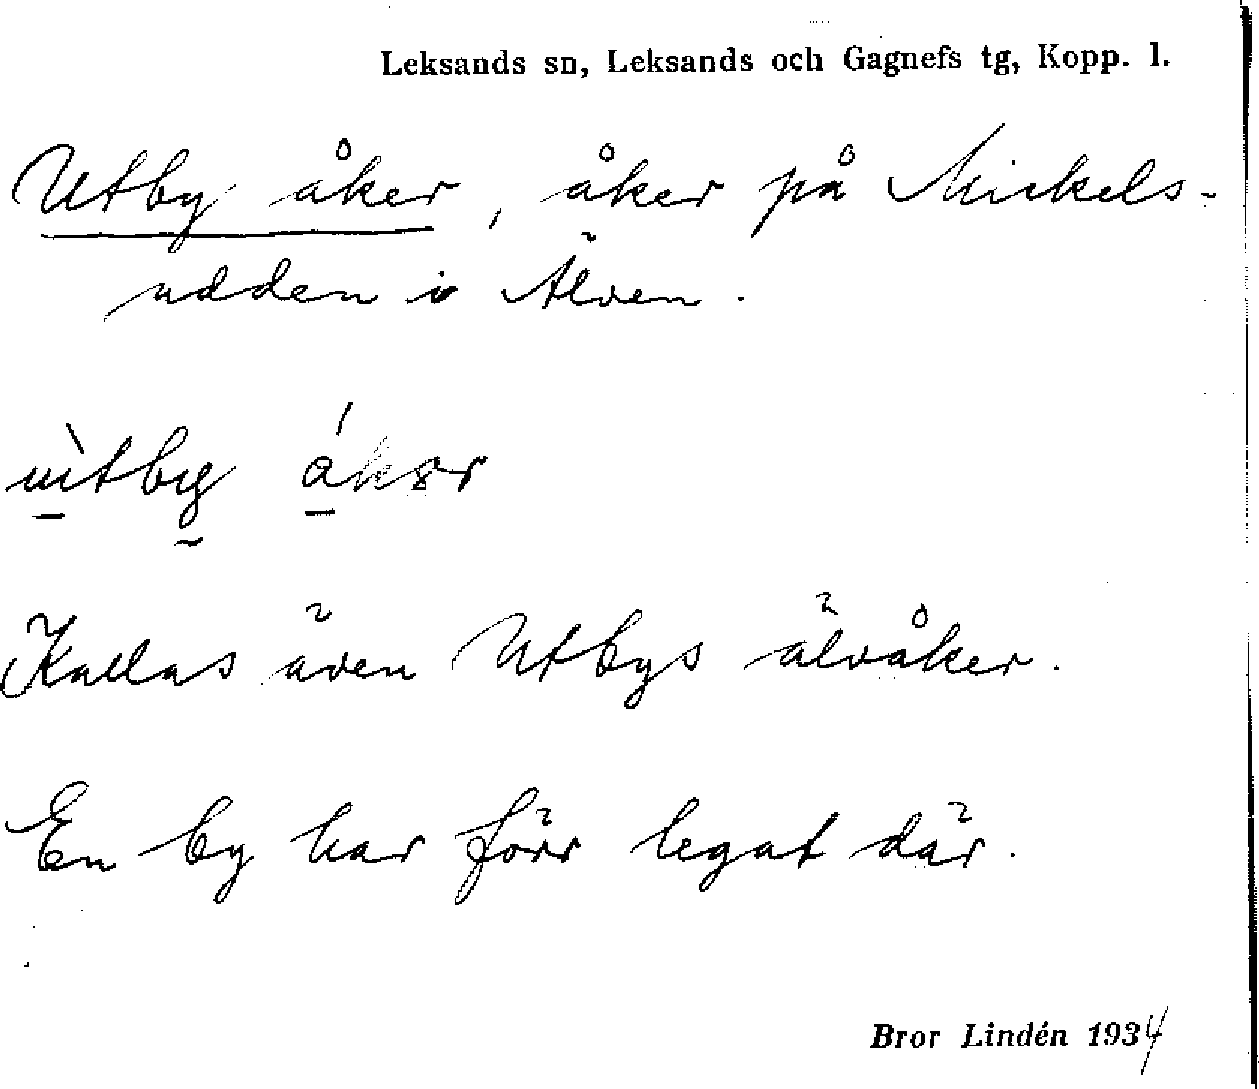 Leksands sn, Leksands och Gagnefs tg, Kopp. l.
Utby åker, åker på Mickels-
udden i Älven.
Kallas även Utbys älvåker.
En by har förr legat där.
Bror Lindén 1934